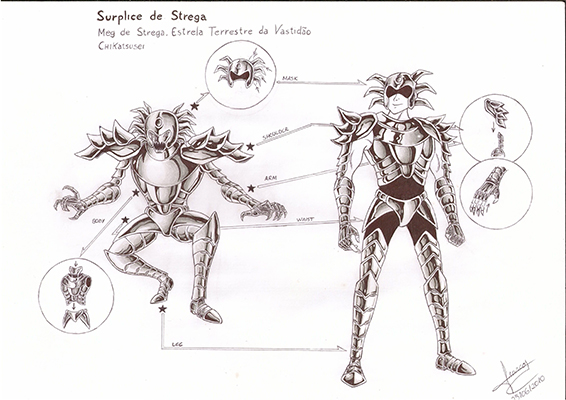 Surplice de Strega
Meg de Strega. Estrela Terrestre da Vastidão
Chikatsusei
MASK
SHOULDER
ARM
BODY
WAIST
LEG